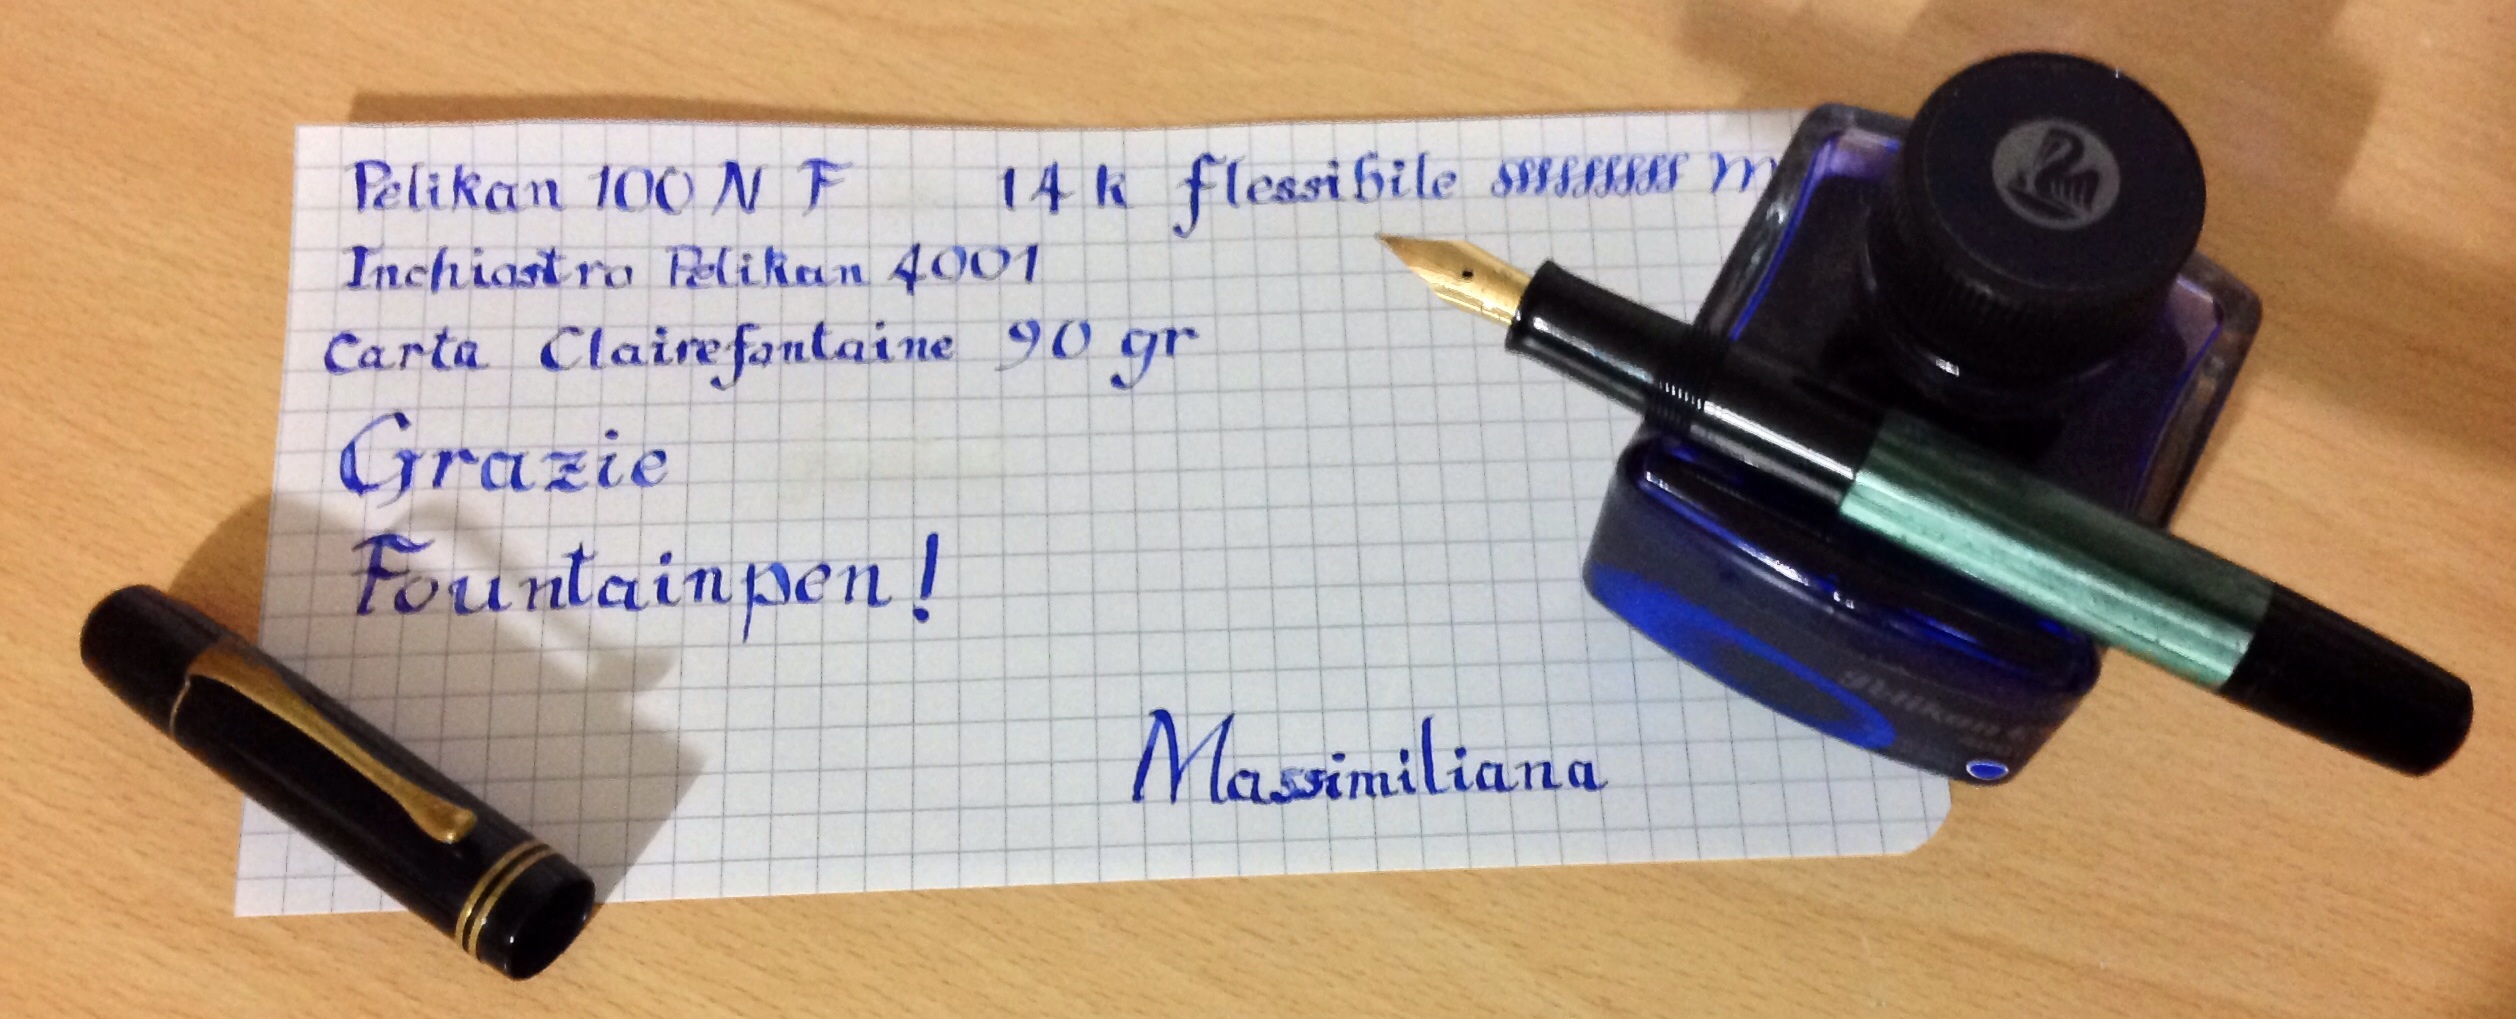 Pelikan 100 N F 14 k flessibile sssssssss m
Inchiostro Pelikan 4001
Carta Clairefontaine 90 gr
Grazie
Fountainpen!
Massimiliana
Pelikan